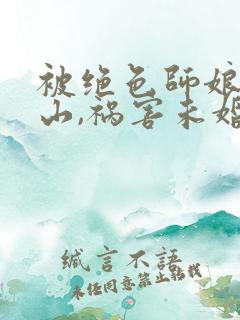 被绝色师娘
山,祸害未婚
缄言不語
未经同意禁止转载